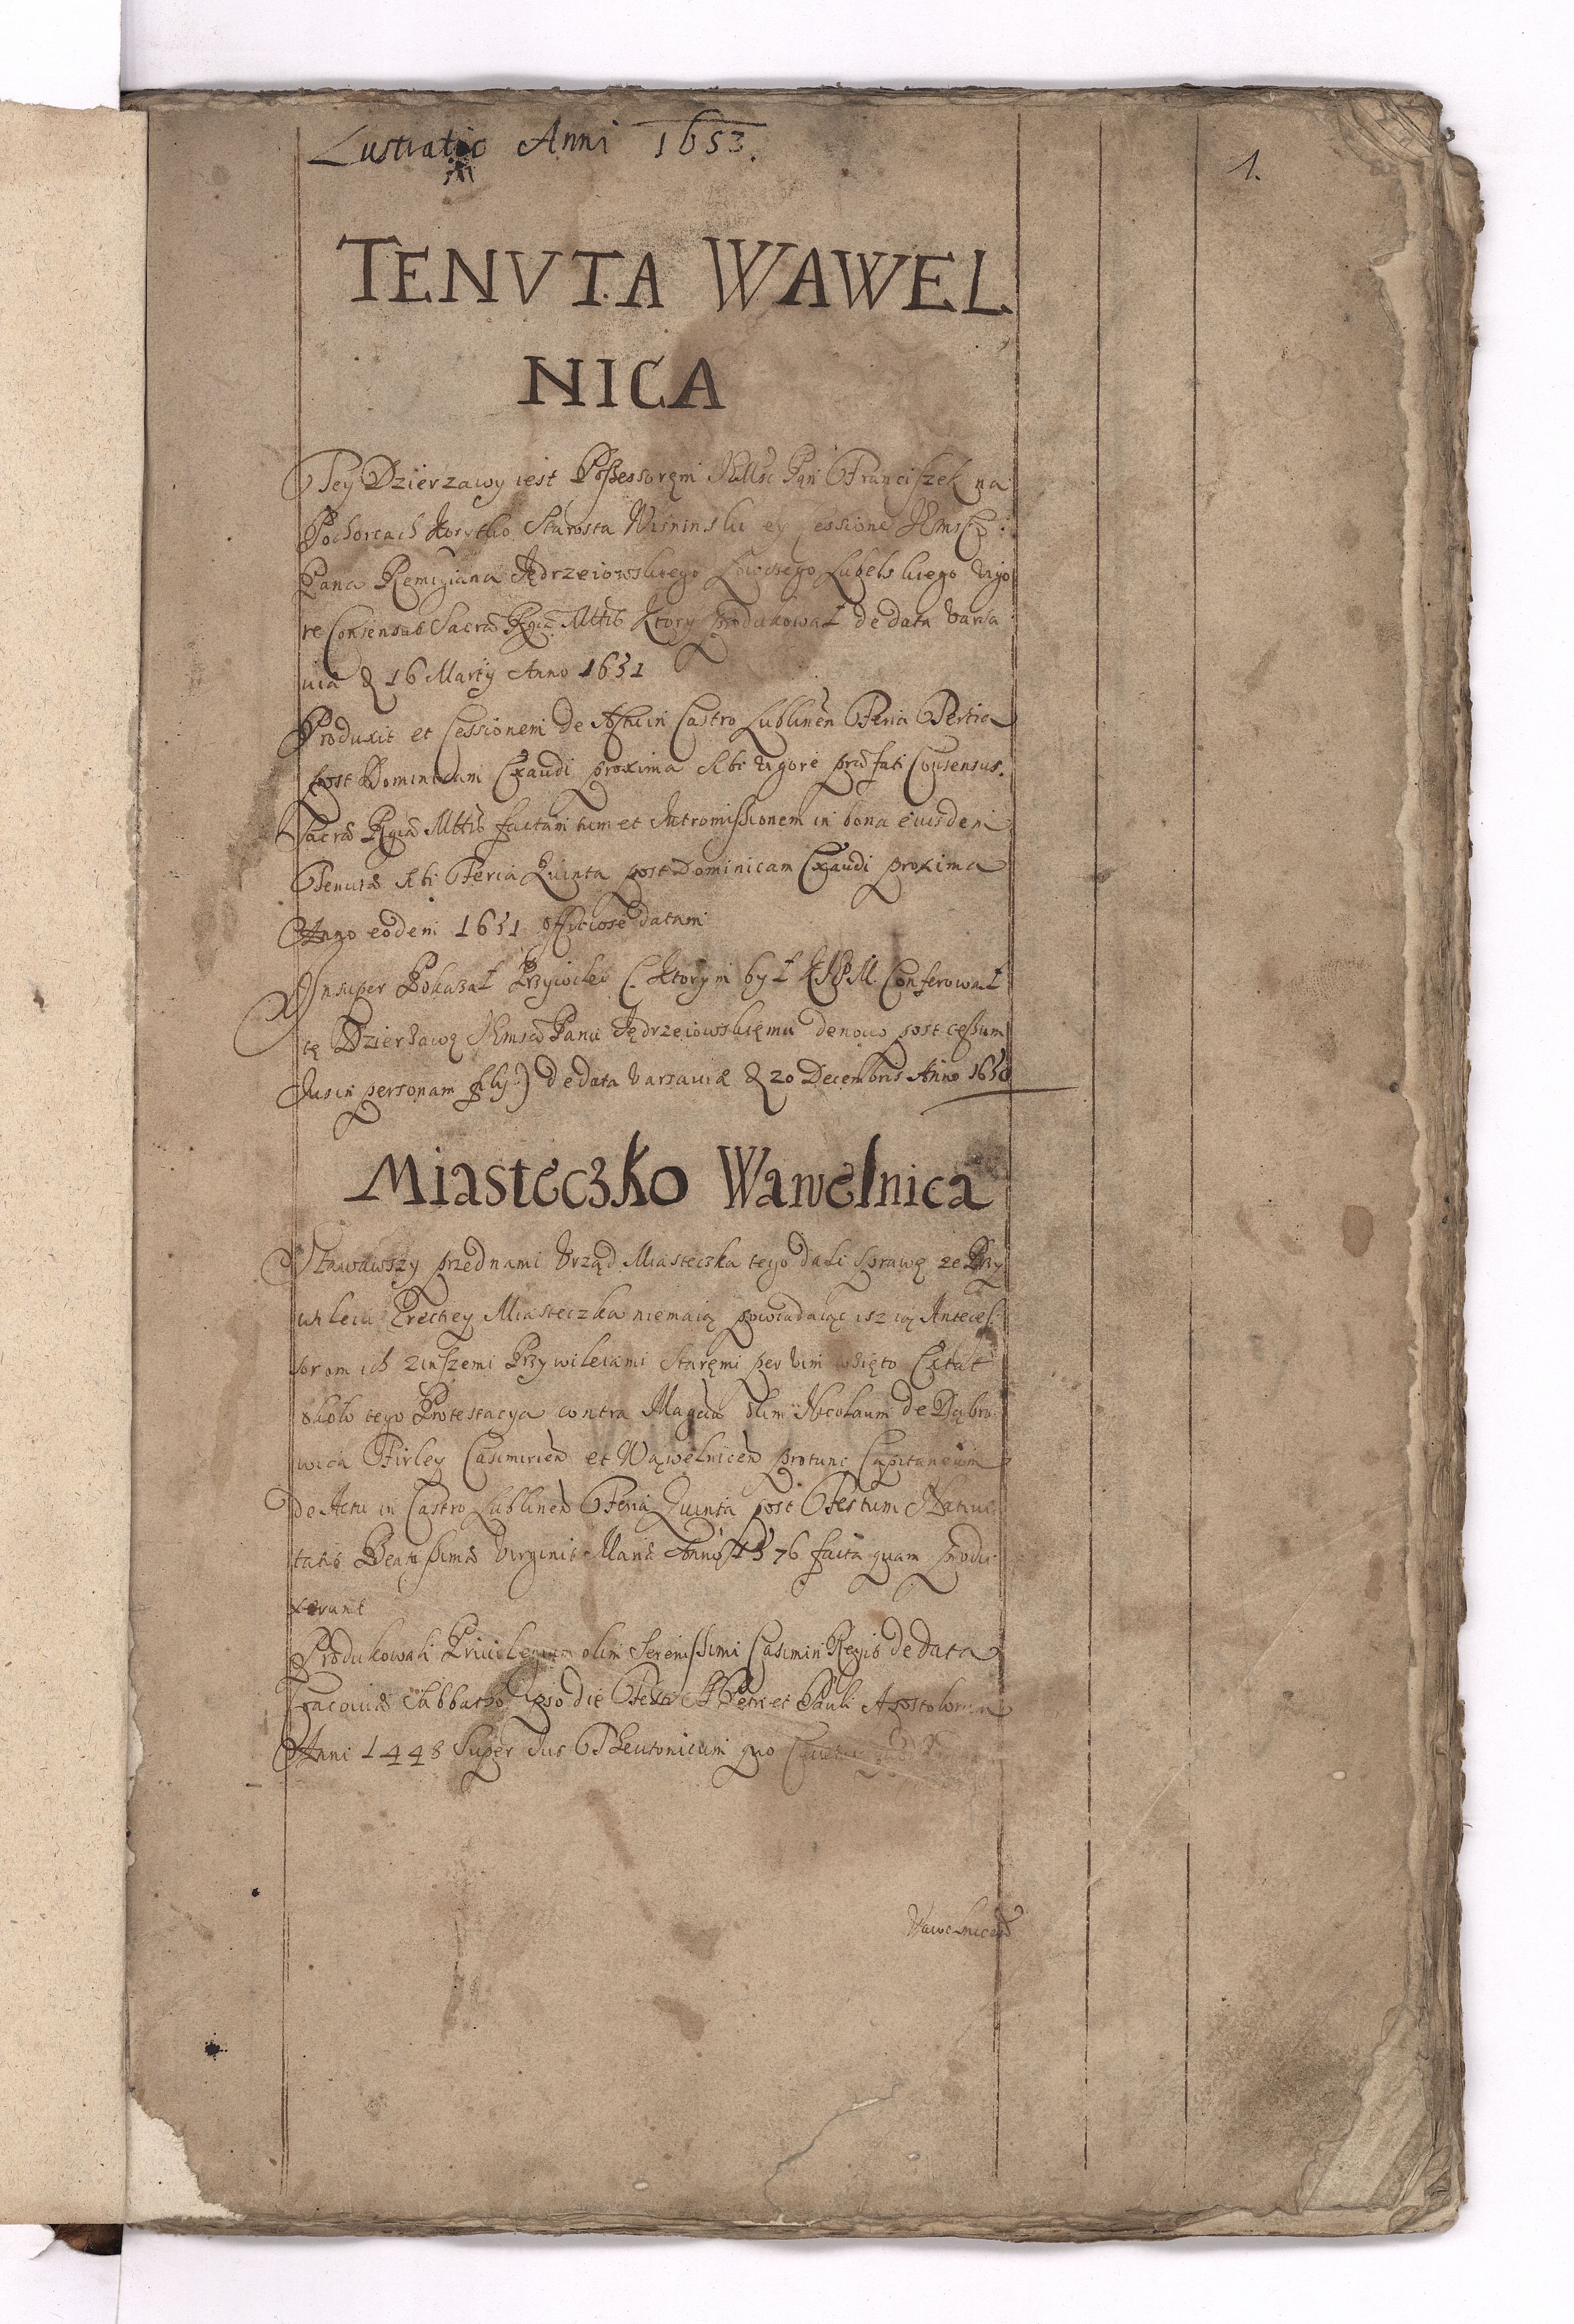 Lustratio Anni 1653.
1.
TENVTA WAWEL
NICA
Tey Dzierzawy iest Possessorem JeMsc Pan Franciszek na
Pochorcach Korytko Starosta Wisninski ex Cessione JEmsci
Pana Remigiana Jędrzeiowskiego Łowczego Lubelskiego Vigo
re Consensus Sacrae Rgiae Mttis Ktory produkował de data Varsa
via D 16 Martij Anno 1651
Produxit et Cessionem de Actu in Castro Lublinen Feria Tertia
post Dominicam Exaudi proxima sibi vigore praefati Consensus.
Sacrae Rgiae Mttis factam tum et Intromissionem in bona eiusdem
Tenutae sibi Feria Quinta post Dominicam Exaudi proxima
Anno eodem 1651 officiose datam
Insuper Pokazał Przywiley (Ktorym był KJM Conferował
tę Dzierżawę JEmsci Panu Jędrzeiowskiemu denovo post cessum
Jus in personam filij) de data Varsaviae D 20 Decembris Anno 1650
Miasteczko Wawelnica
Stawawszy przed nami Vrząd Miasteczka tego dali Sprawę ze Przy
wileiu Erectiey Miasteczka niemaią powiadaiąc isz ią Anteces
sorom ich z inszemi Przywileiami Staremi per vim wzięto Extat
około tego Protestacya contra Magcum olim Nicolaum de Dąbro
wica Firley Casimirien et Wąwelnicen protunc Capitaneum
de Actu in Castro Lublinen Feria Quinta post Festum Nativi
tatis Beatissimae Virginis Mariae Anno 1576 facta quam produ
xerunt
Produkowali Priuilegium olim Serenissimi Casimiri Regis de data
Cracoviae Sabbatho ipso die Festi Petri et Pauli Apostolorum
Anni 1448 Super Jus Theutonicum quo
Wawelnicen